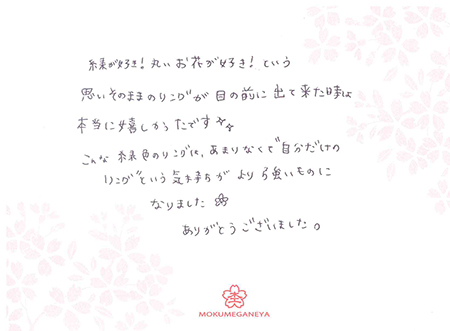 緑が好き！丸いお花が好き！という
思いそのままのリングが目の前に出て来た時は
本当に嬉しかったです☆☆
こんな緑色のリングは、あまりなくて"自分だけの
リング"という気持ちがより強いものに
なりました
ありがとうございました。
MOKUMEGANEYA